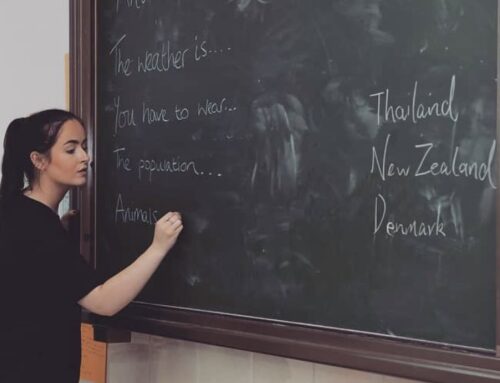 The weather is....
You have to wear...
The population...
Animals
Thailand
New Zealand
Denmark